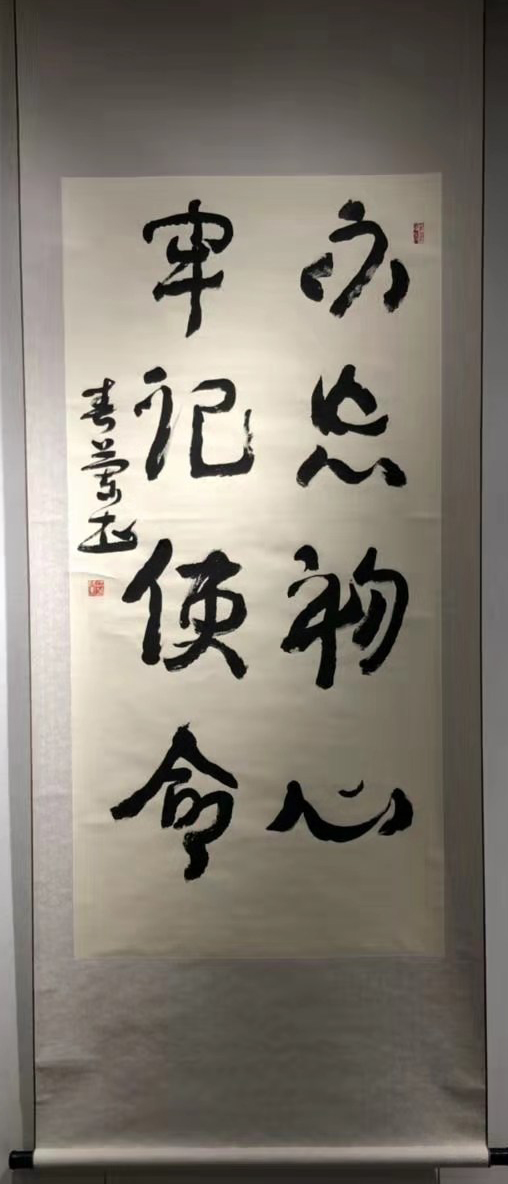 不忘初心
牢记使命
春兰书